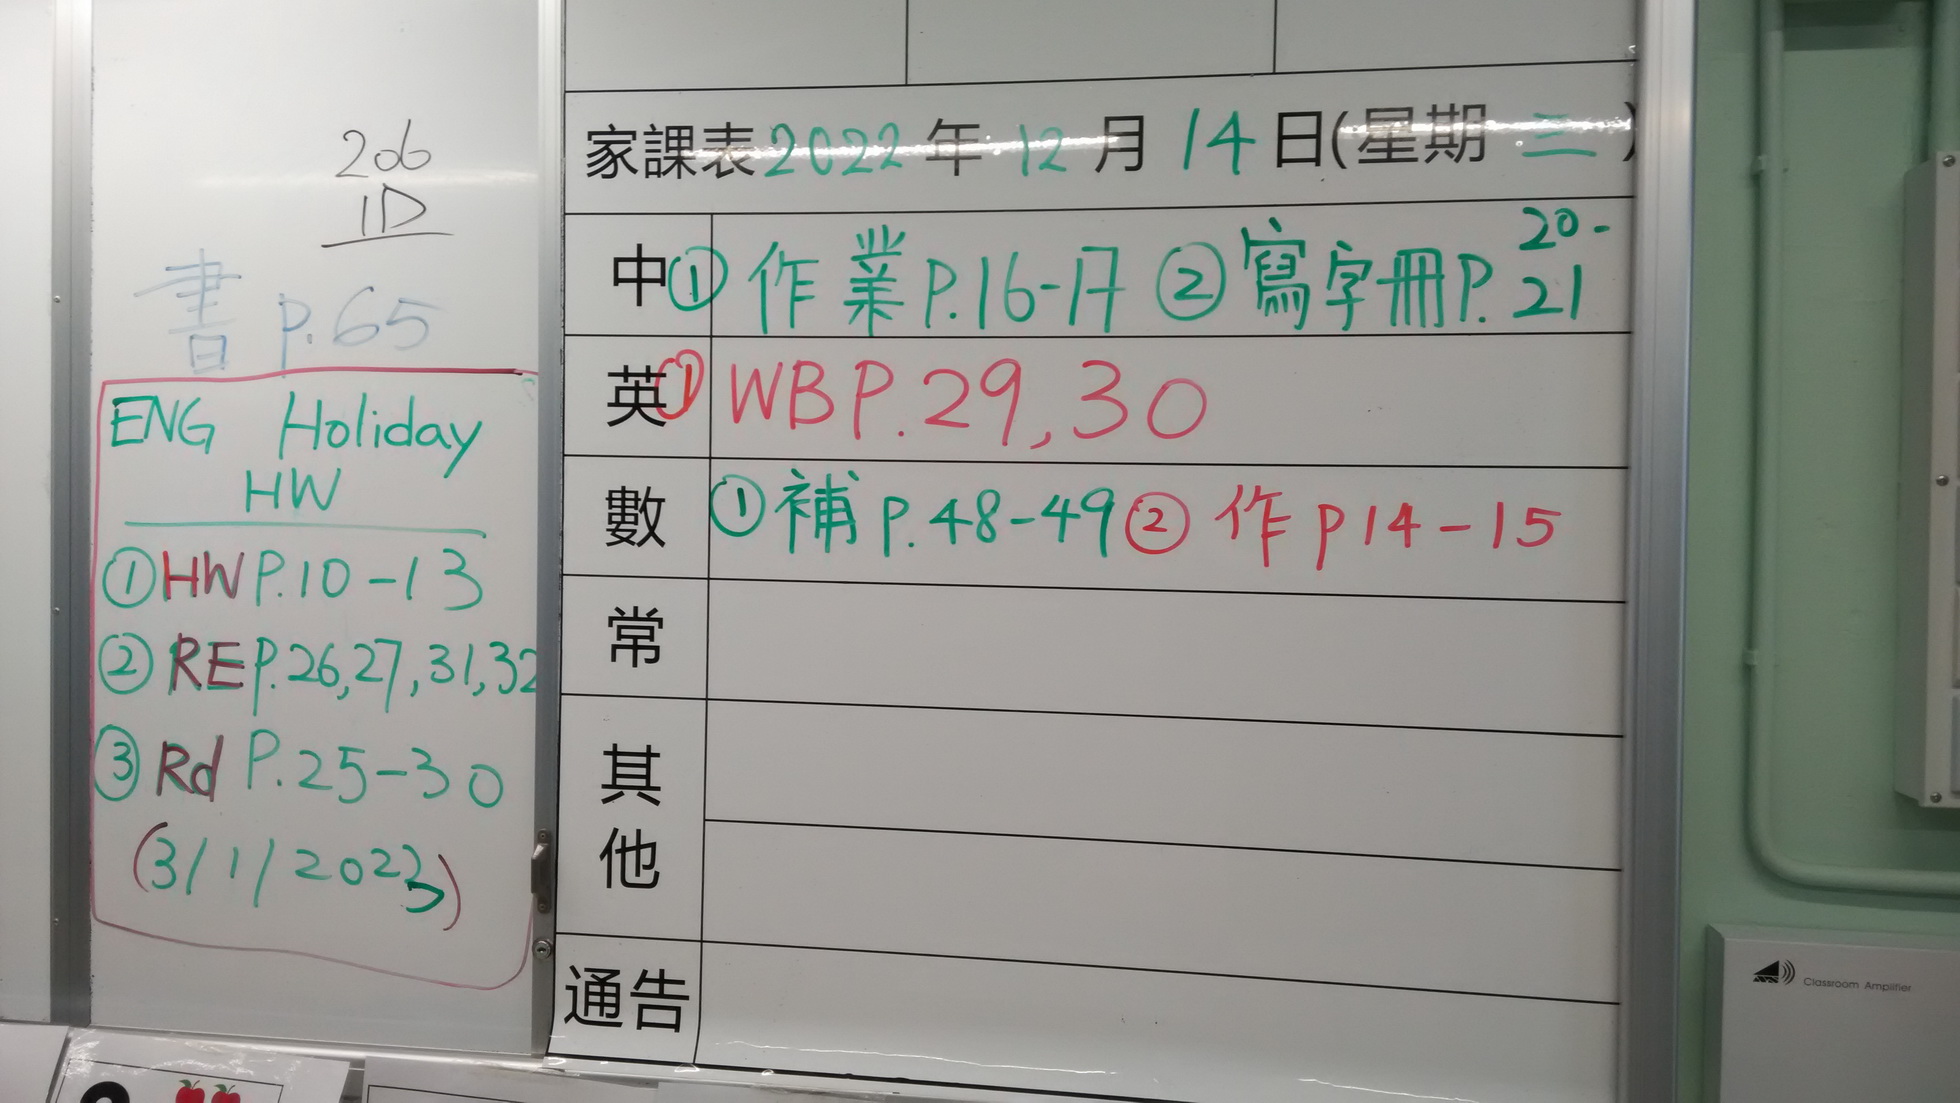 206
1D
書 p.65
ENG Holiday
HW
① HW P.10-13
② RE P.26,27,31,32
③ Rd P.25-30
(3/1/2023)
家課表2022年12月14日(星期三)
中 ① 作業P.16-17 ② 寫字冊P.20-21
英 ① WB P.29,30
數 ① 補 p.48-49 ② 作 p14-15
常
其他
通告
Classroom Amplifier